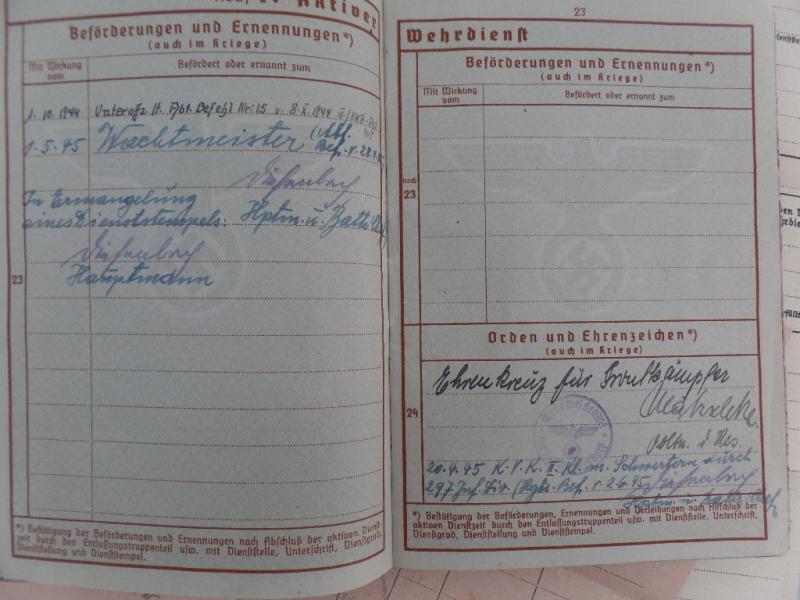 IV. Aktiver
Beförderungen und Ernennungen*)
(auch im Kriege)
Mit Wirkung vom
Befördert oder ernannt zum
1. 10. 1944 Unteroffz. lt. Abt. Befehl Nr. 15 v. 8. X. 1944
1. 5. 45 Wachtmeister (Abt.
Bef. v. 28.4.45
Diefenbach
In Ermangelung
eines Dienststempels: Hptm. u. Battr.
Diefenbach
Hauptmann
23
*) Bestätigung der Beförderungen und Ernennungen nach Abschluß der aktiven Dienst-
zeit durch den Entlassungstruppenteil usw. mit Dienststelle, Unterschrift, Dienstgrad,
Dienststellung und Dienststempel.
23
Wehrdienst
Beförderungen und Ernennungen*)
(auch im Kriege)
Mit Wirkung vom
Befördert oder ernannt zum
noch
23
Orden und Ehrenzeichen*)
(auch im Kriege)
Ehrenkreuz für Frontkämpfer
Obltn. d. Res.
24
20.4.45 K.V.K. II. Kl. m. Schwertern durch
297 Inf. Div. (Rgts. Bef. v. 2.6.45 Diefenbach
Hptm. u.
*) Bestätigung der Beförderungen, Ernennungen und Verleihungen nach Abschluß der
aktiven Dienstzeit durch den Entlassungstruppenteil usw. mit Dienststelle, Unterschrift,
Dienstgrad, Dienststellung und Dienststempel.